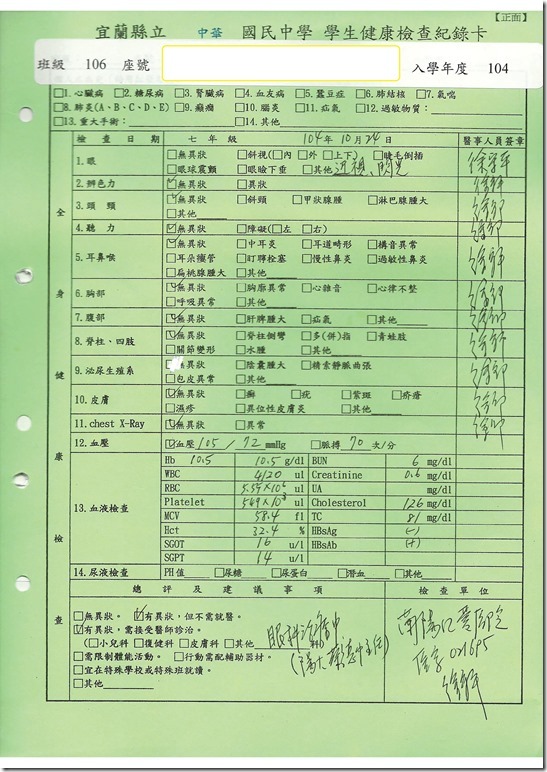 【正面】
宜蘭縣立 中華 國民中學 學生健康檢查紀錄卡
班級 106 座號 入學年度 104
□1.心臟病 □2.糖尿病 □3.腎臟病 □4.血友病 □5.蠶豆症 □6.肺結核 □7.氣喘
□8.肺炎(A、B、C、D、E) □9.癲癇 □10.腦炎 □11.疝氣 □12.過敏物質：
□13.重大手術： □14.其他
全身健康檢查
檢查日期 七年級 104年10月24日 醫事人員簽章
1.眼 □無異狀 □斜視(□內 □外 □上下) □睫毛倒插
□眼球震顫 □眼瞼下垂 □其他 近視、閃光
2.辨色力 ☑無異狀 □異狀
3.頭頸 ☑無異狀 □斜頸 □甲狀腺腫 □淋巴腺腫大
□其他
4.聽力 ☑無異狀 □障礙(□左 □右)
5.耳鼻喉 ☑無異狀 □中耳炎 □耳道畸形 □構音異常
□耳朵獲管 □盯聹栓塞 □慢性鼻炎 □過敏性鼻炎
□扁桃腺腫大 □其他
6.胸部 ☑無異狀 □胸廓異常 □心雜音 □心律不整
□呼吸異常 □其他
7.腹部 ☑無異狀 □肝脾腫大 □疝氣 □其他
8.脊柱、四肢 ☑無異狀 □脊柱側彎 □多(併)指 □青蛙肢
□關節變形 □水腫 □其他
9.泌尿生殖系 無異狀 □陰囊腫大 □精索靜脈曲張
□包皮異常 □其他
10.皮膚 ☑無異狀 □癬 □疣 □紫斑 □疥瘡
□濕疹 □異位性皮膚炎 □其他
11.chest X-Ray ☑無異狀 □異常
12.血壓 ☑血壓 105 / 72 mmHg □脈搏 70 次/分
13.血液檢查
Hb 10.5 10.5 g/dl BUN 6 mg/dl
WBC 4120 ul Creatinine 0.6 mg/dl
RBC 5.55×10⁶ ul UA mg/dl
Platelet 569×10³ ul Cholesterol 126 mg/dl
MCV 58.4 fl TC 81 mg/dl
Hct 32.4 % HBsAg (-)
SGOT 16 u/l HBsAb (+)
SGPT 14 u/l
14.尿液檢查 PH值 □尿糖 □尿蛋白 □潛血 □其他
總評及建議事項 檢查單位
□無異狀。 ☑有異狀，但不需就醫。
☑有異狀，需接受醫師診治。
(□小兒科 □復健科 □皮膚科 □其他 眼科治療中 科)
□需限制體能活動。 □行動需配輔助器材。
□宜在特殊學校或特殊班就讀。
□其他